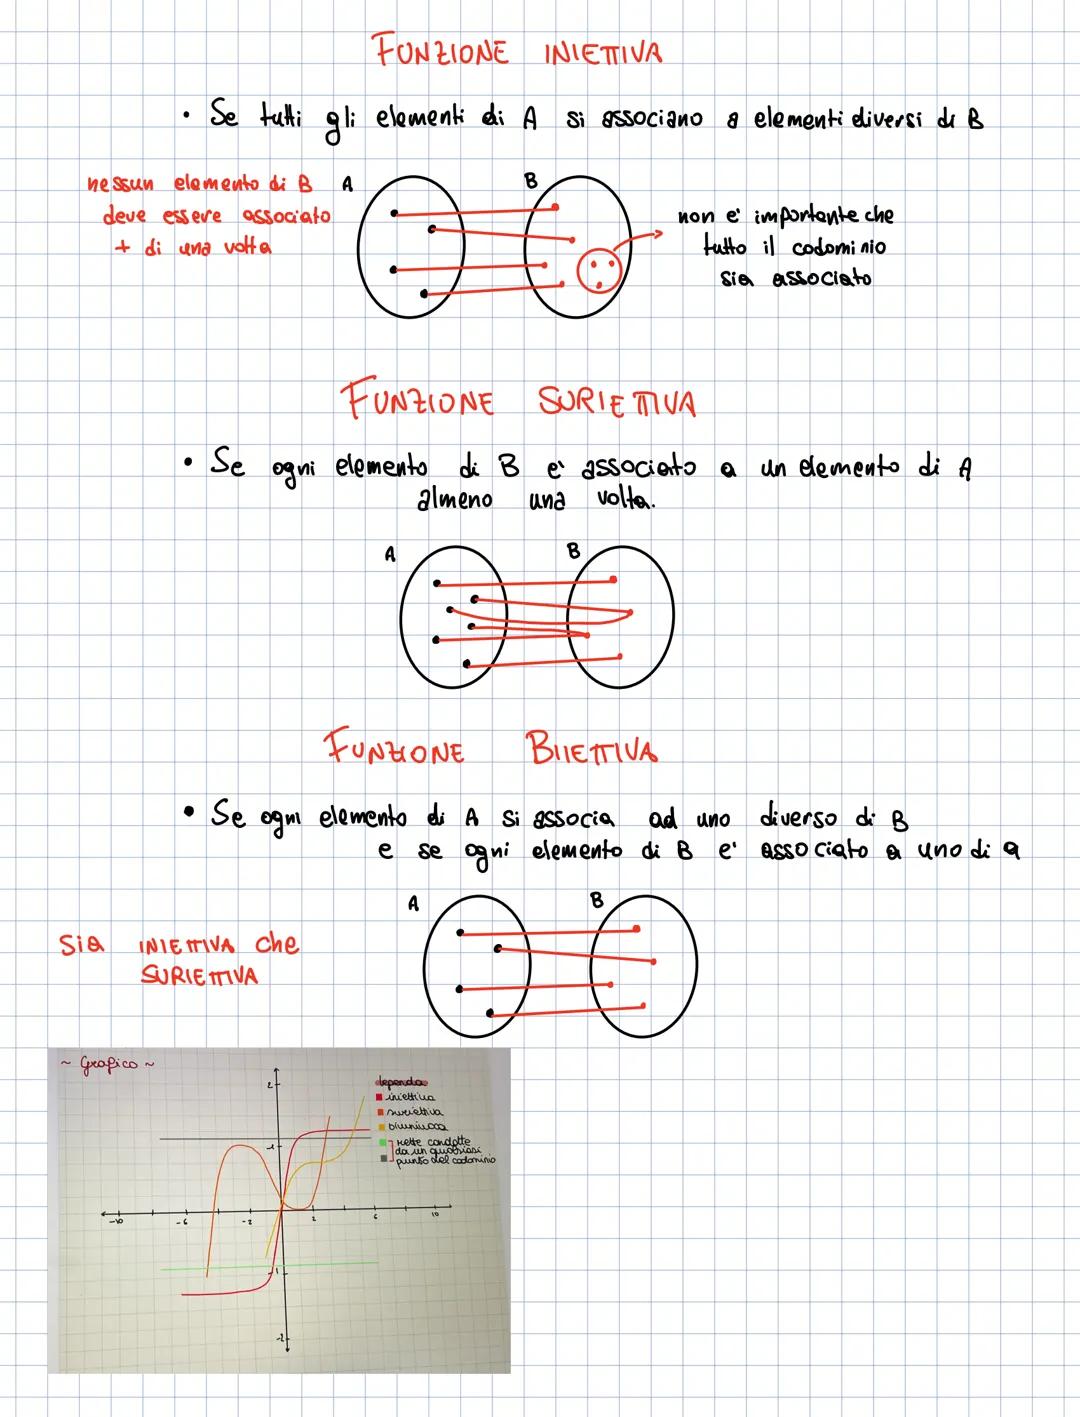 FUNZIONE INIETTIVA
• Se tutti gli elementi di A si associano a elementi diversi di B
nessun elemento di B
deve essere associato
+ di una volta
A
B
non e' importante che
tutto il codominio
sia associato
FUNZIONE SURIETTIVA
• Se ogni elemento di B e' associato a un elemento di A
almeno una volta.
A
B
FUNZIONE BIIETTIVA
• Se ogni elemento di A si associa ad uno diverso di B
e se ogni elemento di B e' associato a uno di a
A
B
Sia INIETTIVA che
SURIETTIVA
~ Grafico ~
legenda
iniettiva
suriettiva
biunivoca
rette condotte
da un qualsiasi
punto del codominio
2
1
-10
-6
-2
2
6
10
-1
-2